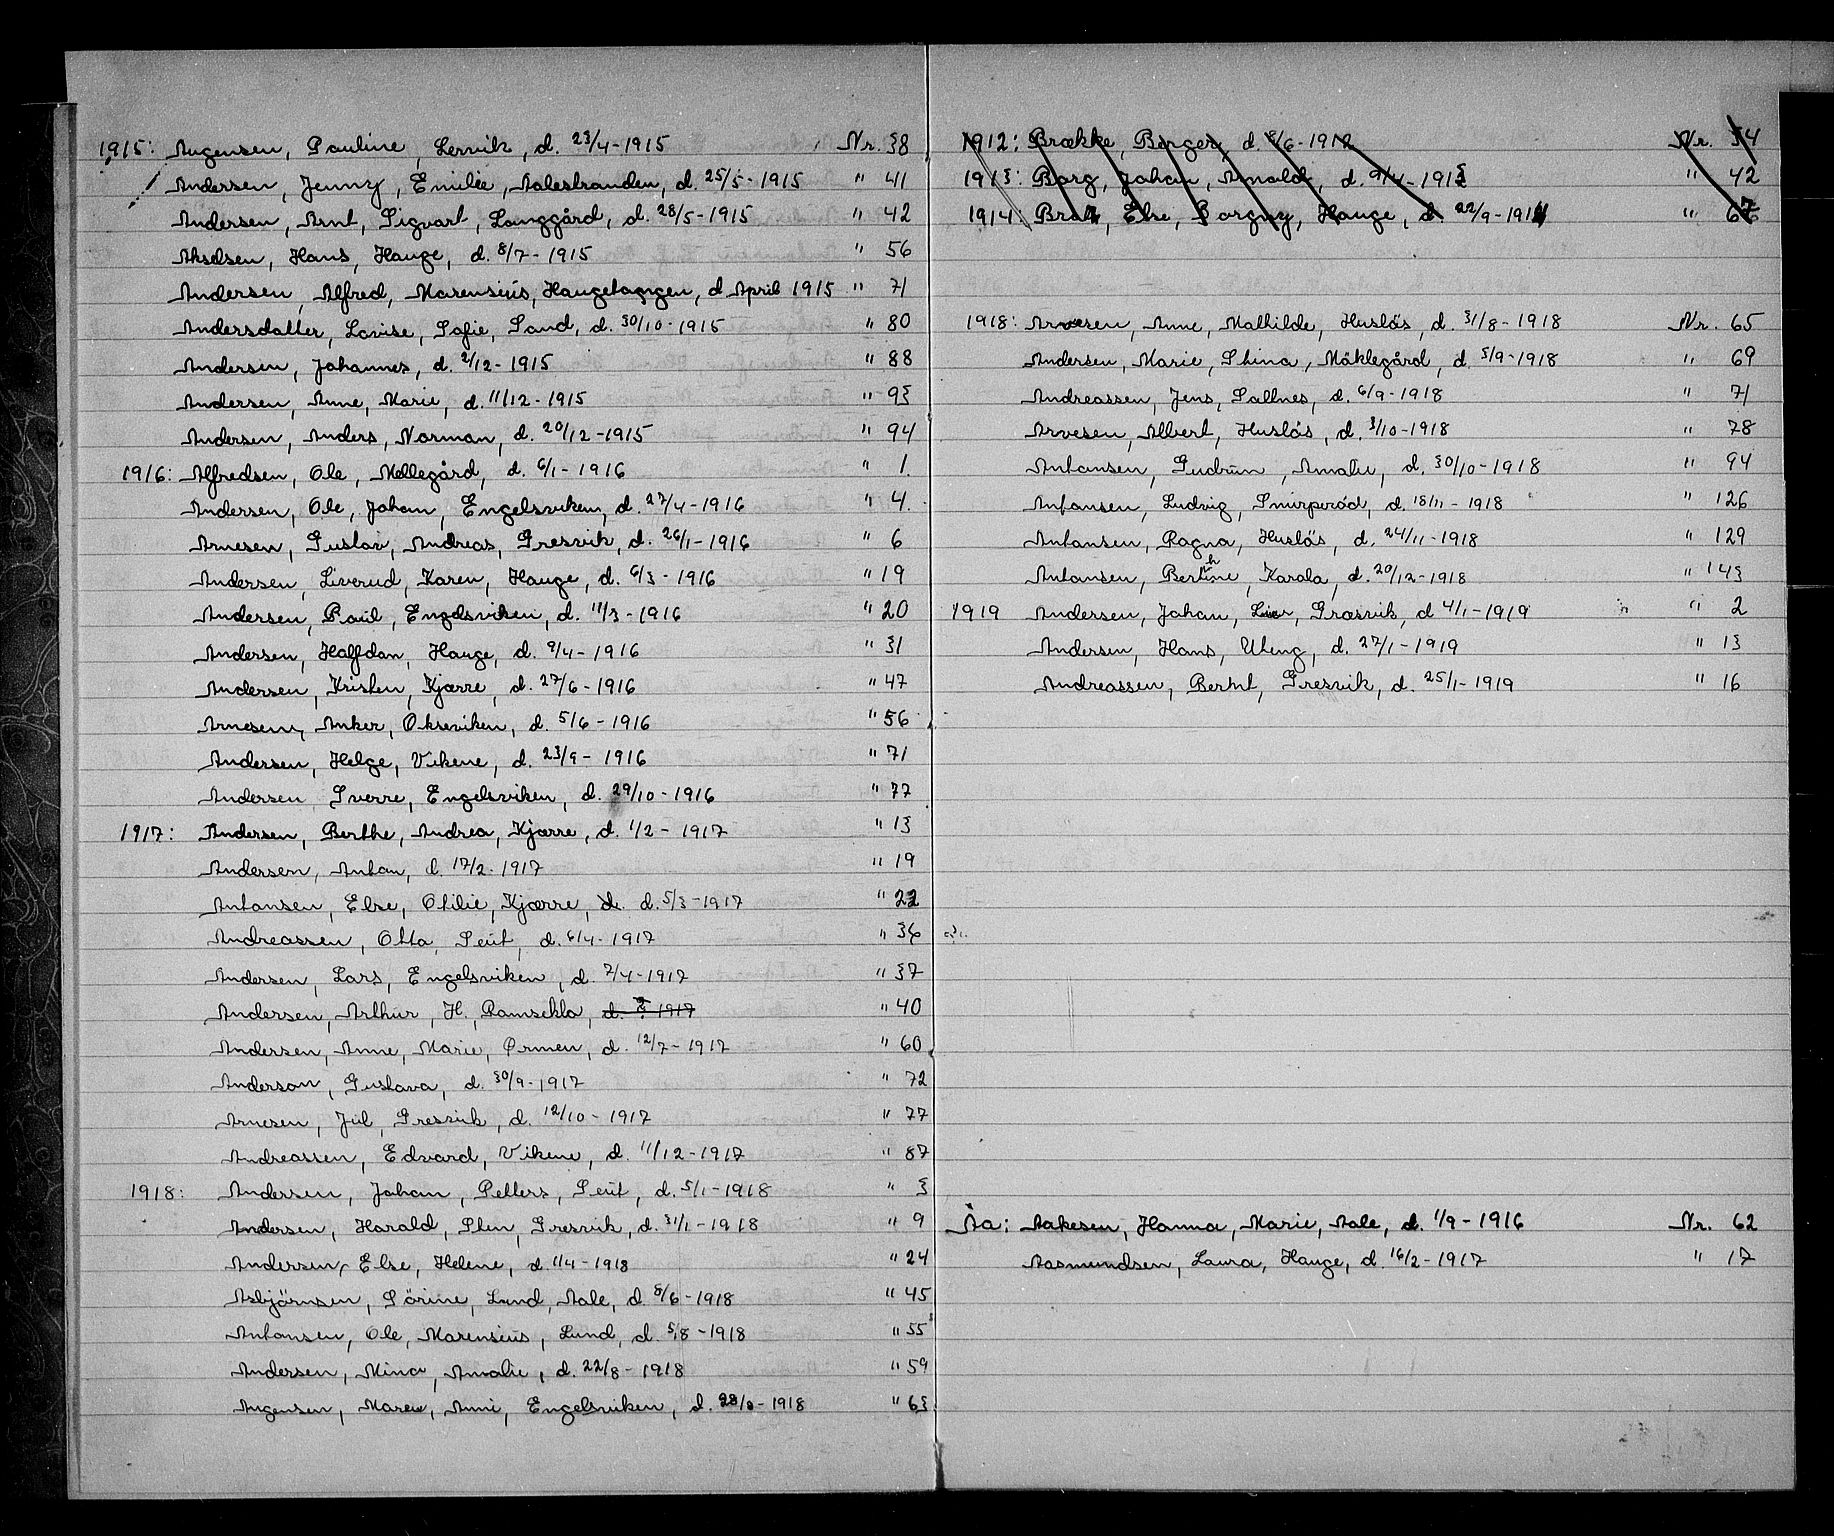 1915: Augensen, Pauline, Lervik, d. 23/4-1915 Nr. 38
Andersen, Jenny, Emilie, Aalestranden, d. 25/5-1915 " 41
Andersen, Arnt, Sigvart, Langgård, d. 28/5-1915 " 42
Akselsen, Hans, Hauge, d. 8/7-1915 " 56
Andersen, Alfred, Marensius, Haugetangen, d April 1915 " 71
Andersdatter, Lovise, Sofie, Sand, d. 30/10-1915 " 80
Andersen, Johannes, d. 2/12-1915 " 88
Andersen, Anne, Marie, d. 11/12-1915 " 93
Andersen, Anders, Norman, d. 20/12-1915 " 94
1916: Alfredsen, Ole, Mellegård, d. 6/1-1916 " 1.
Andersen, Ole, Johan, Engelsviken, d. 27/4-1916 " 4.
Arnesen, Gustav, Andreas, Gresvik, d. 26/1-1916 " 6
Andersen, Liverud, Karen, Hauge, d. 6/3-1916 " 19
Andersen, Paul, Engelsviken, d. 11/3-1916 " 20
Andersen, Halfdan, Hauge, d. 9/4-1916 " 31
Andersen, Kristen, Kjærre, d. 27/6-1916 " 47
Arnesen, Anker, Okseviken, d. 5/6-1916 " 56
Andersen, Helge, Vikene, d. 23/9-1916 " 71
Andersen Sverre, Engelsviken, d. 29/10-1916 " 77
1917: Andersen, Berthe, Andrea, Kjærre, d. 1/2-1917 " 13
Andersen, Anton, d. 17/2-1917 " 19
Antonsen, Else, Otilie, Kjærre, d. d. 5/3-1917 " 22
Andreassen, Otto, Seut, d. 6/4-1917 " 36
Andersen, Lars, Engelsviken, d. 7/4-1917 " 37
Andersen, Arthur, H. Ramsekla, d. ? 1917 " 40
Andersen, Anne, Marie, Ørmen, d. 12/7-1917 " 60
Anderson, Gustava, d. 30/9-1917 " 72
Arnesen, Jul, Gresvik, d. 12/10-1917 " 77
Andreassen, Edvard, Vikene, d. 11/12-1917 " 87
1918: Andersen, Johan, Petters, Seut, d. 5/1-1918 " 3
Andersen, Harald, Sten, Gresvik, d. 31/1-1918 " 9
Andersen, Else, Helene, d. 1/4-1918 " 24
Asbjörnsen, Sörine, Lund, Aale, d. 8/6-1918 " 45
Antonsen, Ole, Marensius, Lund, d. 5/8-1918 " 55
Andersen, Mina, Amalie, d. 22/8-1918 " 59
Augensen, Maren, Anni, Engelsviken, d. 28/8-1918 " 63
1912: Brække, Birger, d. 8/6-1912 Nr. 54
1913: Borg, Johan, Arnold, d. 9/4-1913 " 42
1914: Else, Borgny, Hauge, d 22/9-1914 " 67
1918: Arvesen, Anne, Mathilde, Huslös, d. 31/8-1918 Nr. 65
Andersen, Marie, Stina, Mäklegård, d. 5/9-1918 " 69
Andreassen, Jens, Saltnes, d. 6/9-1918 " 71
Arvesen, Albert, Huslös, d. 3/10-1918 " 78
Antonsen, Gudrun, Amalie, d. 30/10-1918 " 94
Antonsen, Ludvig, Smirpröd, d. 18/11-1918 " 126
Antonsen, Ragna, Huslös, d. 24/11-1918 " 129
Antonsen, Berthine, Karala, d. 20/12-1918 " 143
1919 Andersen, Johan, Græsvik, d 4/1-1919 " 2
Andersen, Hans, Uteng, d. 27/1-1919 " 13
Andreassen, Bernt, Gresvik, d. 25/1-1919 " 16
Aa: Aakesen, Hanna, Marie, Aale, d. 1/9-1916 Nr. 62
Aasmundsen, Laura, Hauge, d. 16/2-1917 " 17